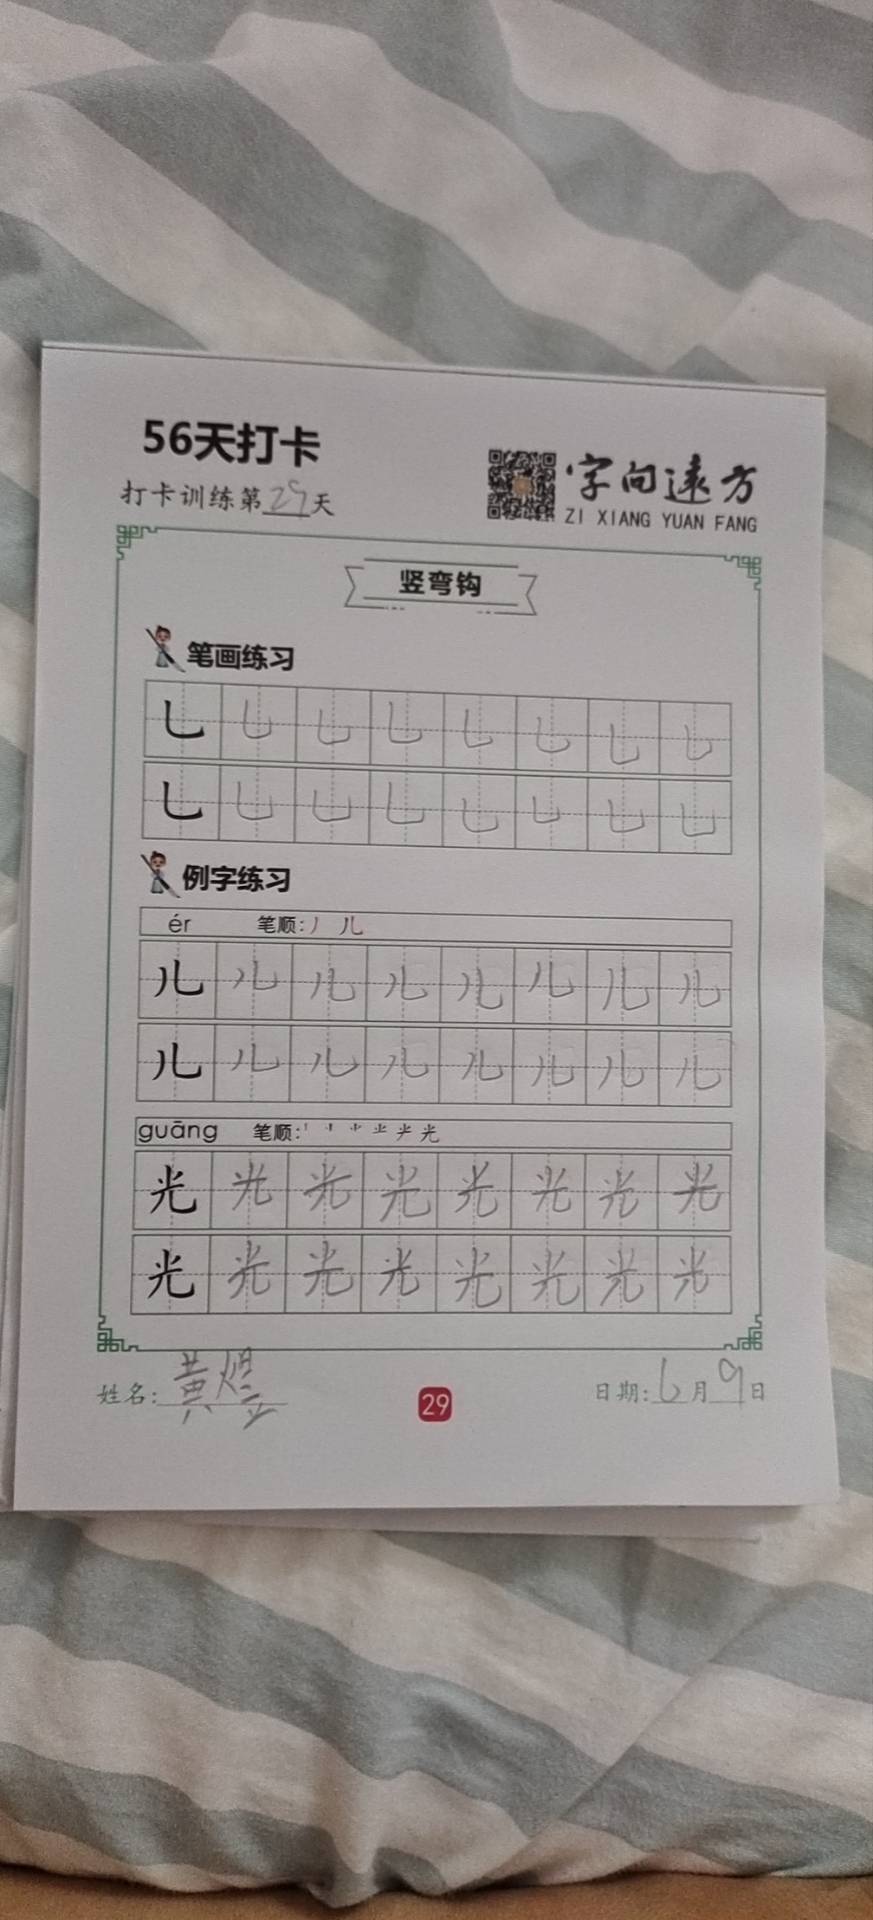 56天打卡
打卡训练第29天
字向远方
ZI XIANG YUAN FANG
竖弯钩
笔画练习
乚 乚 乚 乚 乚 乚 乚 乚
乚 乚 乚 乚 乚 乚 乚 乚
例字练习
ér 笔顺: 丿 儿
儿 儿 儿 儿 儿 儿 儿 儿
儿 儿 儿 儿 儿 儿 儿 儿
guāng 笔顺:
光 光 光 光 光 光 光 光
光 光 光 光 光 光 光 光
姓名: 黄煜
29
日期: 6月9日